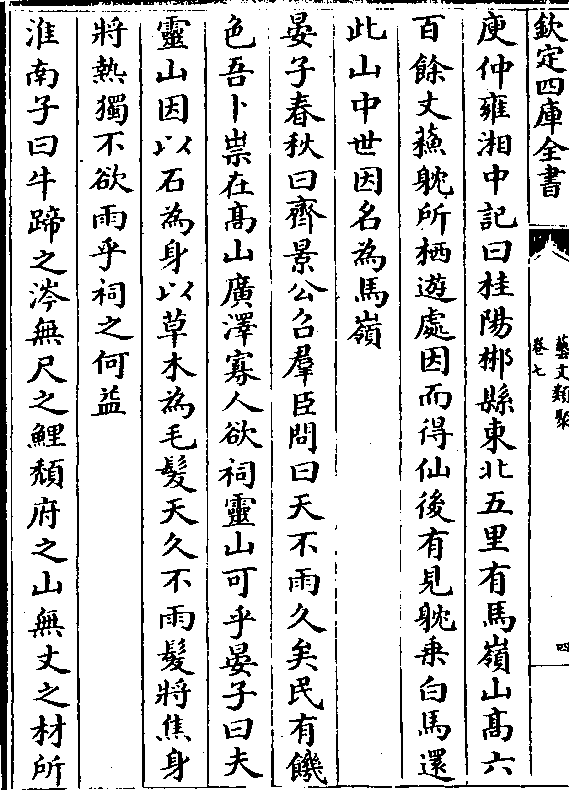 欽定四庫全書
藝文類聚
卷七
四
庾仲雍湘中記曰桂陽郴縣東北五里有馬嶺山髙六
百餘丈蘓躭所栖遊處因而得仙後有見躭乗白馬還
此山中世因名為馬嶺
晏子春秋曰齊景公召羣臣問曰天不雨久矣民有饑
色吾卜祟在髙山廣澤寡人欲祠靈山可乎晏子曰夫
靈山因以石為身以草木為毛髮天久不雨髮將焦身
將熱獨不欲雨乎祠之何益
淮南子曰牛蹄之涔無尺之鯉頽府之山無丈之材所